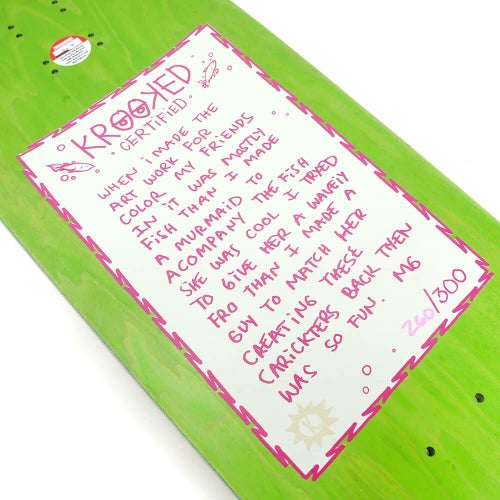 KROOKED
CERTIFIED.
WHEN i MADE THE
ART WORK FOR
COLOR MY FRIENDS
IN IT WAS MOSTLY
FISH THAN I MADE
A MURMAID TO
ACOMPANY THE FISH
SHE WAS COOL I TRYED
TO GIVE HER A WAVEIY
FRO THAN I MADE A
GUY TO MATCH HER
CREATING THESE
CARICKTERS BACK THEN
WAS SO FUN. MG
260/300